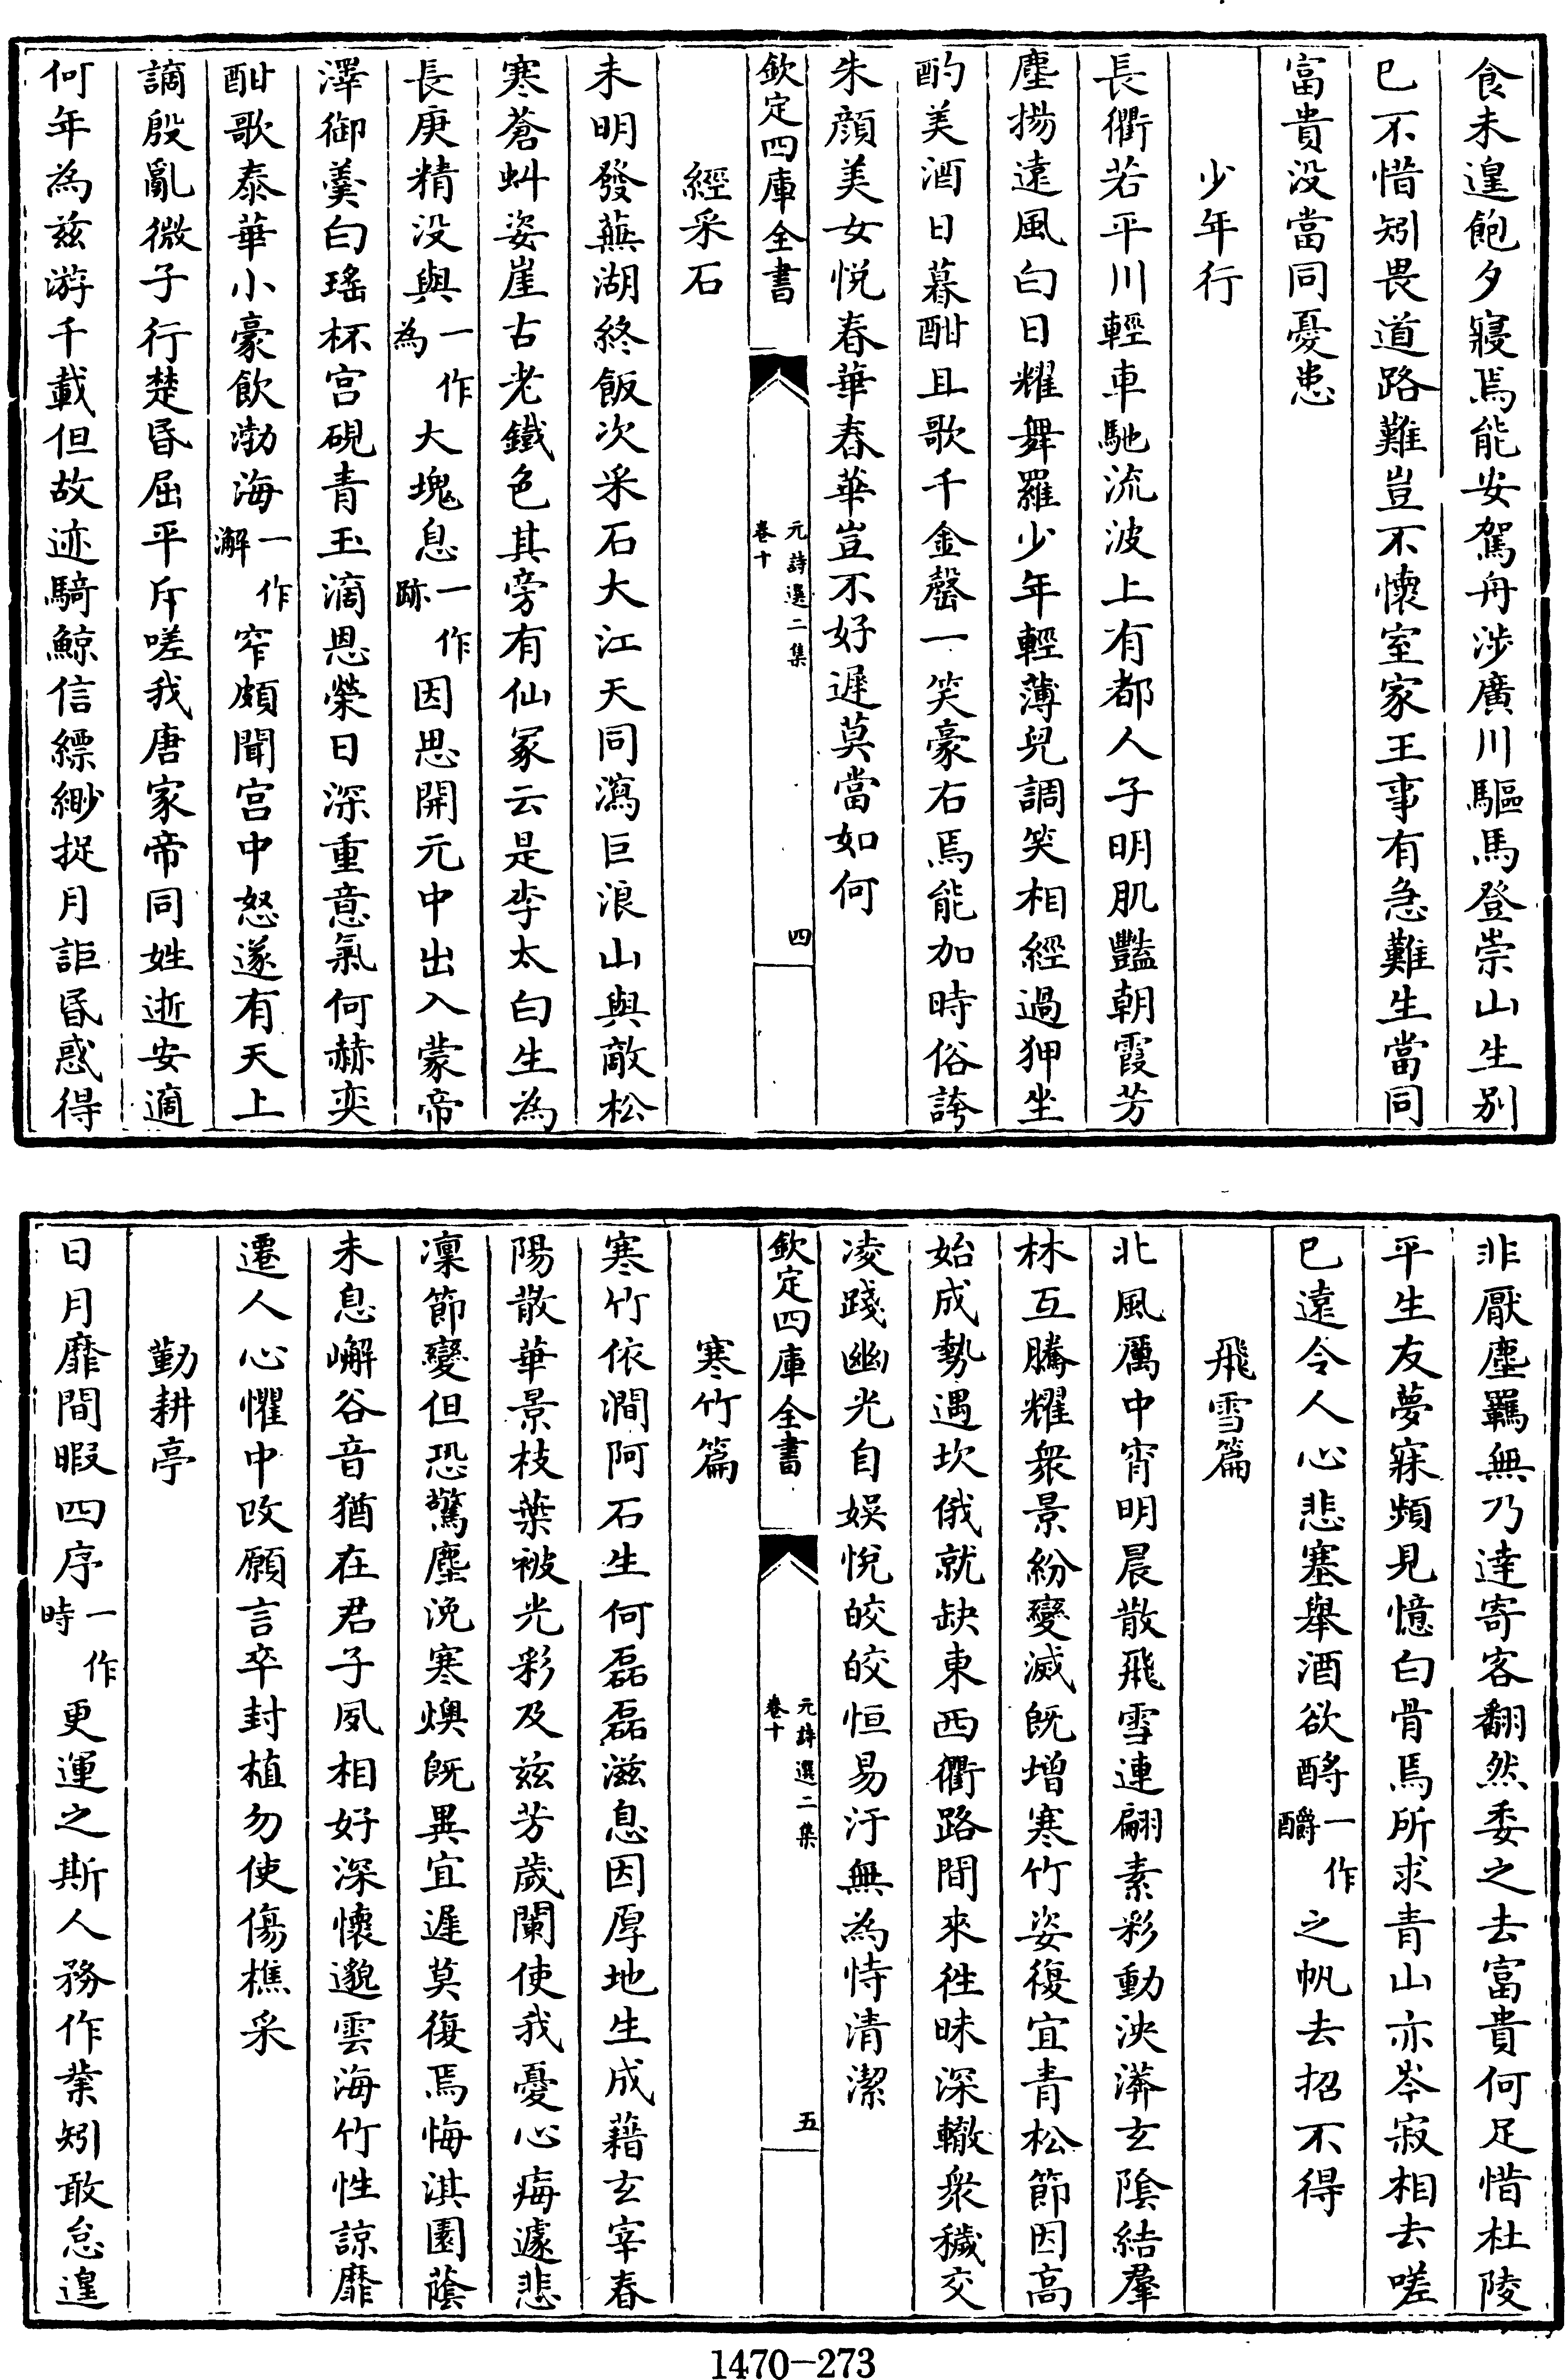 食未遑飽夕寢焉能安駕舟涉廣川驅馬登崇山生别
已不惜矧畏道路難豈不懷室家王事有急難生當同
富貴没當同憂患
少年行
長衢若平川輕車馳流波上有都人子明肌豔朝霞芳
塵揚遠風白日耀舞羅少年輕薄兒調笑相經過狎坐
酌美酒日暮酣且歌千金罄一笑豪右焉能加時俗誇
朱顔美女悦春華春華豈不好遲莫當如何
欽定四庫全書 元詩選二集 卷十 四
經采石
未明發蕪湖終飯次采石大江天同瀉巨浪山與敵松
寒蒼虯姿崖古老鐵色其旁有仙冢云是李太白生為
長庚精没與一作為大塊息一作跡因思開元中出入蒙帝
澤御羹白瑤杯宫硯青玉滴恩榮日深重意氣何赫奕
酣歌泰華小豪飲渤海一作澥窄頗聞宫中怒遂有天上
謫殷亂微子行楚昏屈平斥嗟我唐家帝同姓逝安適
何年為兹游千載但故迹騎鯨信縹緲捉月詎昏惑得
非厭塵羈無乃達寄客翻然委之去富貴何足惜杜陵
平生友夢寐頻見憶白骨焉所求青山亦岑寂相去嗟
已遠令人心悲塞舉酒欲酹一作釂之帆去招不得
飛雪篇
北風厲中宵明晨散飛雪連翩素彩動泱漭玄陰結羣
林互騰耀衆景紛變滅既增寒竹姿復宜青松節因高
始成勢遇坎俄就缺東西衢路間來徃昧深轍衆穢交
凌踐幽光自娱悦皎皎恒易汙無為恃清潔
欽定四庫全書 元詩選二集 卷十 五
寒竹篇
寒竹依澗阿石生何磊磊滋息因厚地生成藉玄宰春
陽散華景枝葉被光彩及兹芳歲闌使我憂心痗遽悲
凜節變但恐驚塵浼寒燠既異宜遲莫復焉悔淇園蔭
未息嶰谷音猶在君子夙相好深懷邈雲海竹性諒靡
遷人心懼中改願言卒封植勿使傷樵采
勤耕亭
日月靡間暇四序一作時更運之斯人務作業矧敢怠遑
1470－273